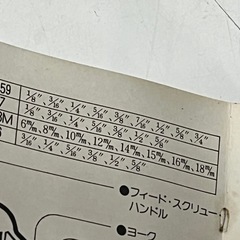 59 1/8", 3/16", 1/4", 5/16", 3/8", 7/16", 1/2", 5/8", 3/4"
7 1/8", 3/16", 1/4", 5/16", 3/8", 1/2", 5/8"
3M 6㎜, 8㎜, 10㎜, 12㎜, 14㎜, 15㎜, 16㎜, 18㎜
3/16", 1/4", 5/16", 3/8", 1/2", 5/8"
●フィード・スクリュー
ハンドル
●ヨーク